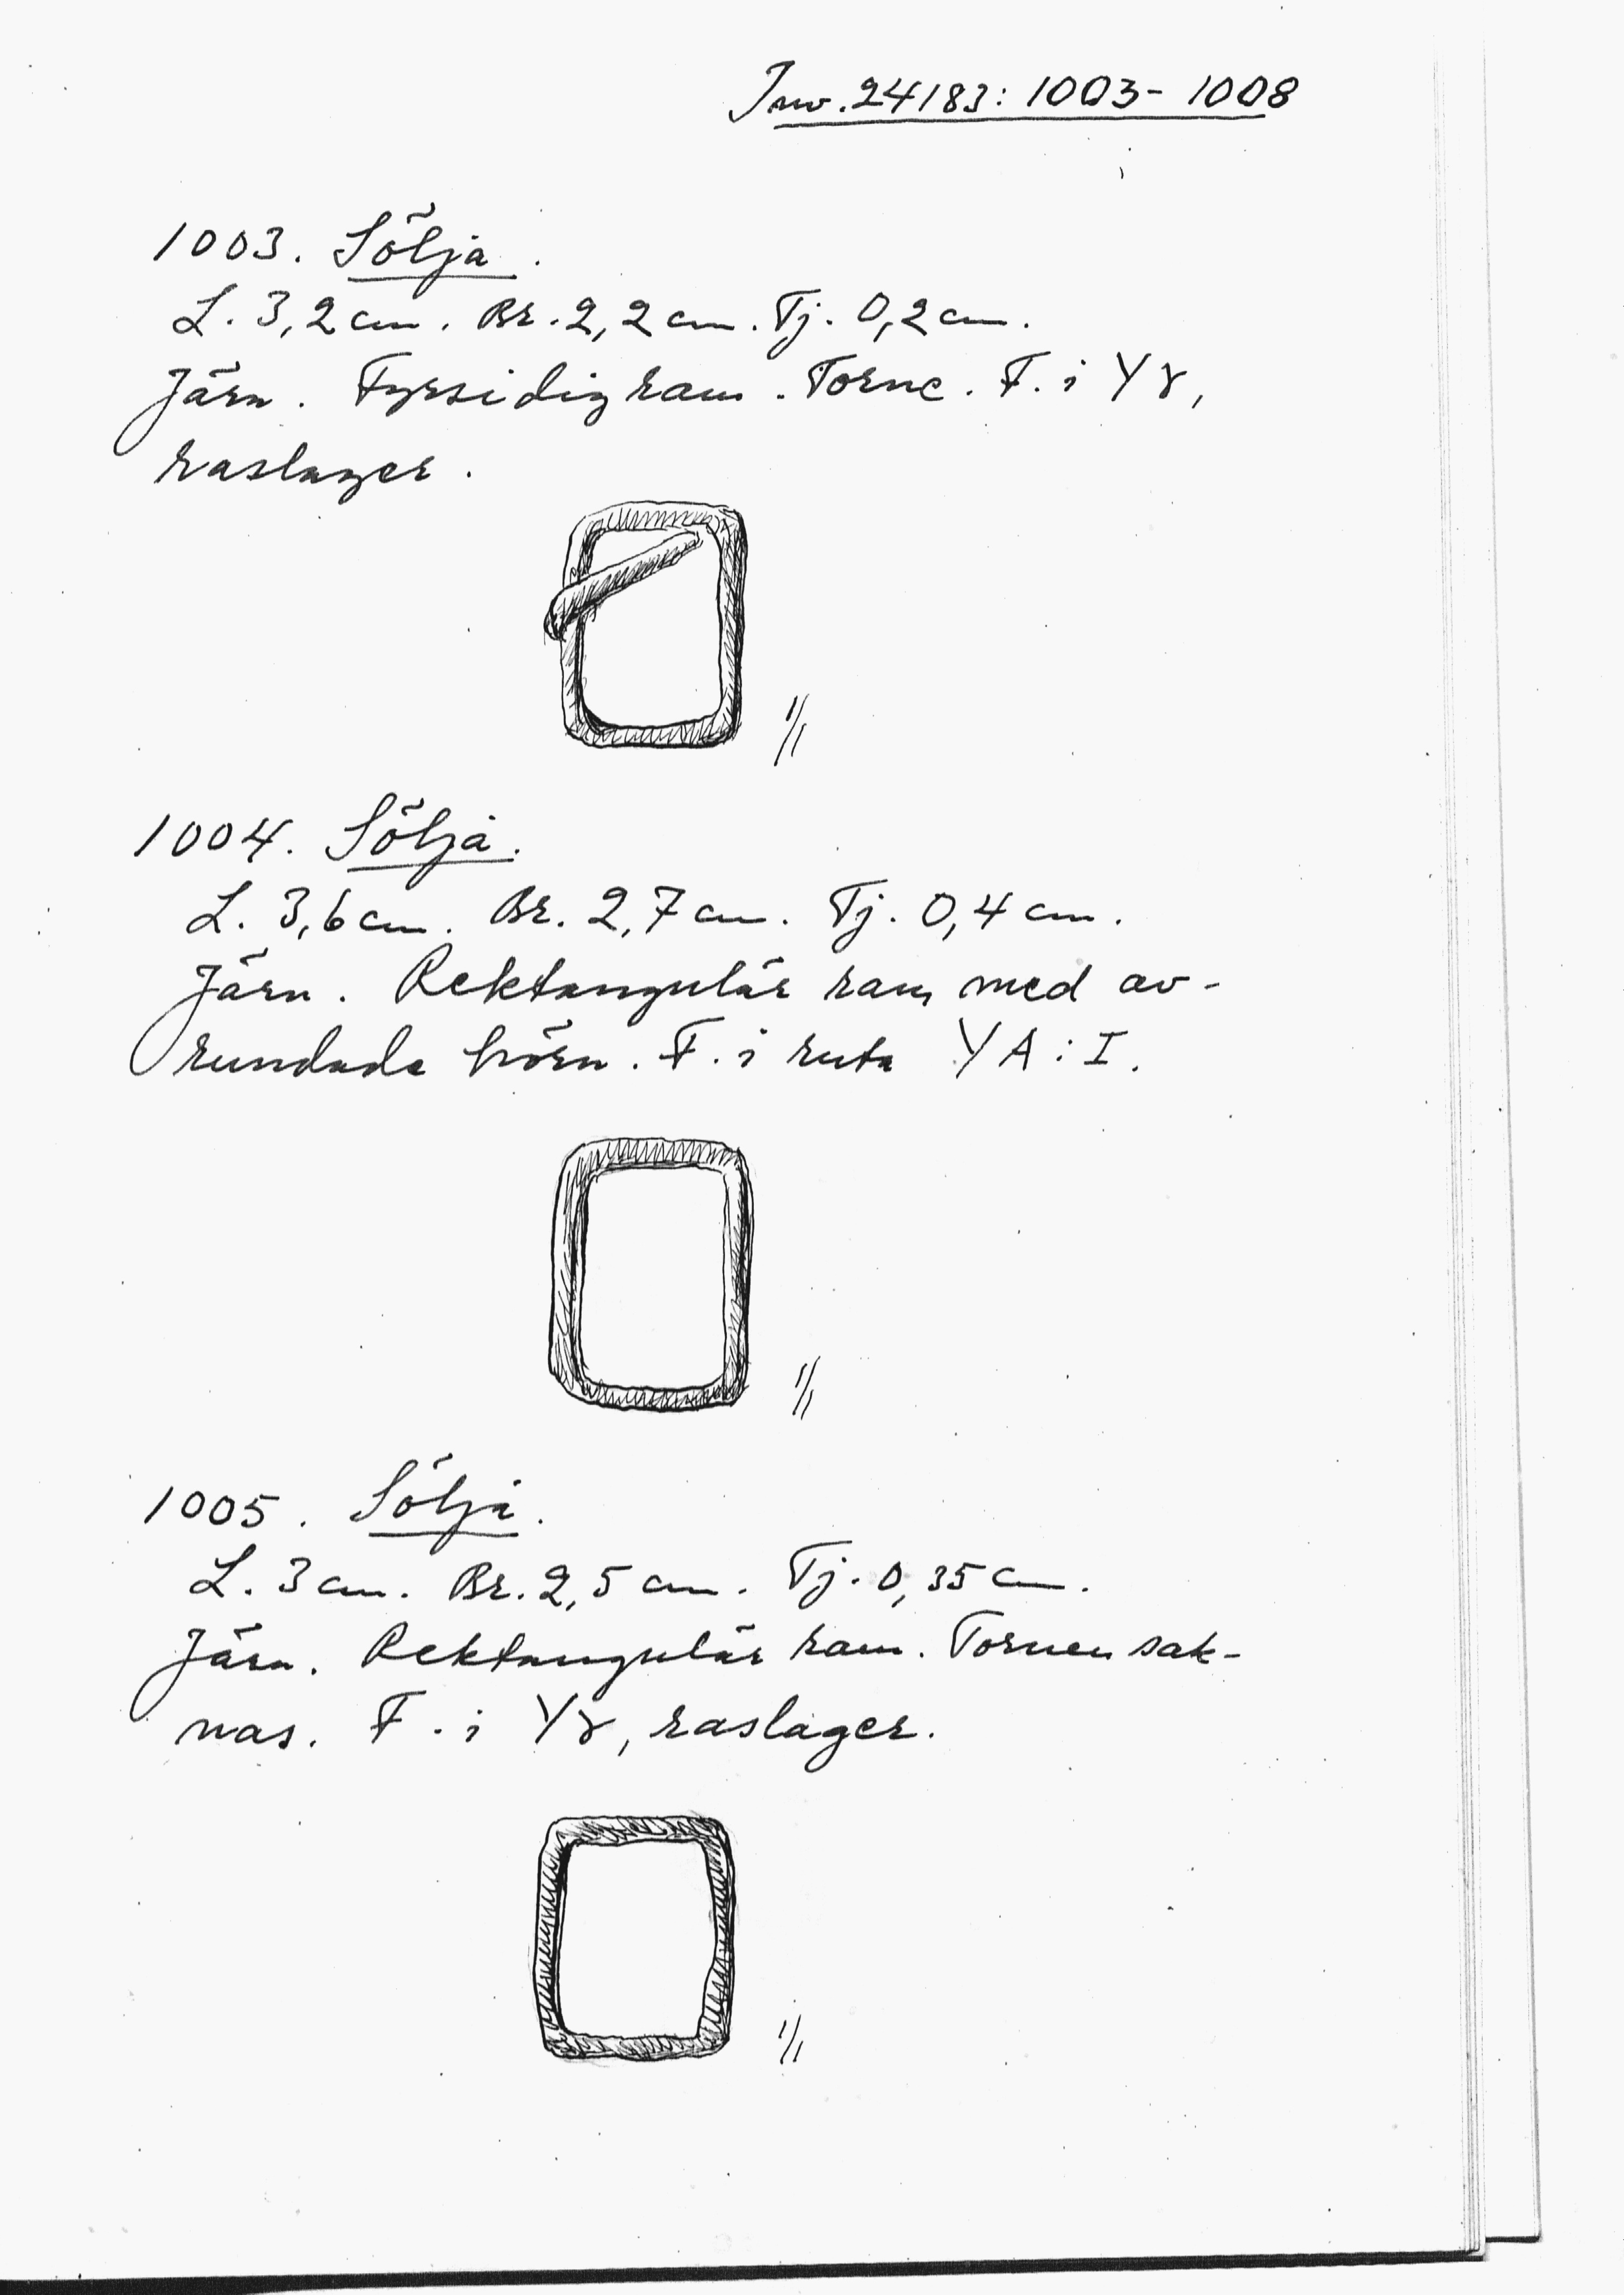 Inv. 24183: 1003-1008
1003. Sölja.
L. 3,2 cm. Br. 2,2 cm. Tj. 0,2 cm.
Järn. Fyrsidig ram. Torne. F. i Yγ,
raslager.
1/1
1004. Sölja.
L. 3,6 cm. Br. 2,7 cm. Tj. 0,4 cm.
Järn. Rektangulär ram med av-
rundade hörn. F. i ruta YA:I.
1/1
1005. Sölja.
L. 3 cm. Br. 2,5 cm. Tj. 0,35 cm.
Järn. Rektangulär ram. Tornen sak-
nas. F. i Yγ, raslager.
1/1